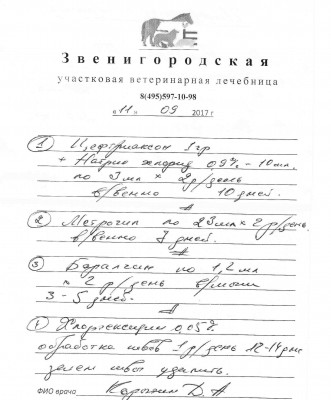 Звенигородская
участковая ветеринарная лечебница
8(495)597-10-98
«11» 09 2017 г
① Цефтриаксон 1гр
+ Натрио хлорид 0,9% - 10мл.
по 3мл × 2р/день
в/венно 10 дней.
② Метрогил по 23мл × 2р/день
в/венно 7 дней.
③ Баралгин по 1,2мл
× 2 р/день в/мышц
3-5 дней.
④ Хлоргексидин 0,05%
обработка швов 1р/день 12-14 дней
затем швы удалить.
ФИО врача Д. А